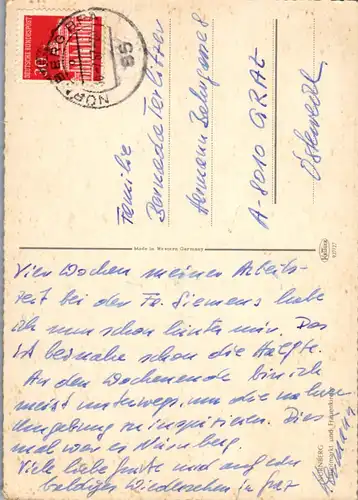 DEUTSCHE BUNDESPOST
30
NÜRNBERG
85
Familie
Hermann
A-8010 GRAZ
Österreich
Made in Western Germany
Vier Wochen meiner Arbeits-
zeit bei der Fa. Siemens habe
ich nun schon hinter mir. Das
ist beinahe schon die Hälfte.
An den Wochenende bin ich
meist unterwegs, um die nähere
Umgebung zu inspizieren. Dies-
mal war es Nürnberg.
Viele liebe Grüße und auf ein
baldiges Wiedersehen in Graz
Hermann
NÜRNBERG
Hauptmarkt und Frauenkirche